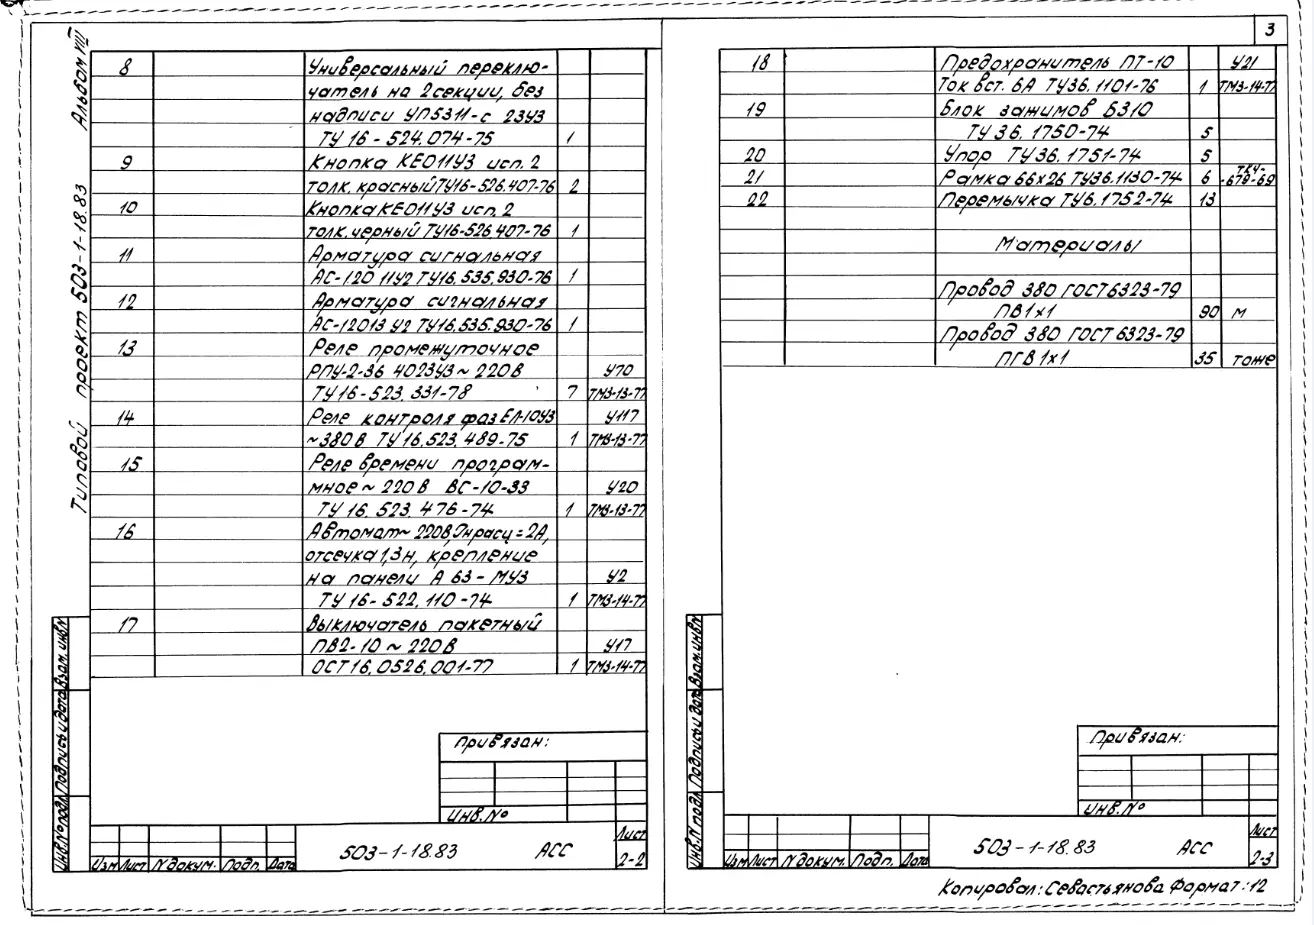 3
Альбом VIII
Типовой проект 503-1-18.83
8 Универсальный переклю-
чатель на 2секции, без
надписи УП5311-с 23У3
ТУ 16-524.074-75 1
9 Кнопка КЕ011У3 исп.2
толк. красный ТУ16-526.407-76 2
10 Кнопка КЕ011У3 исп.2
толк. черный ТУ16-526 407-76 1
11 Арматура сигнальная
АС-120 11У2 ТУ16.535.930-76 1
12 Арматура сигнальная
АС-12013 У2 ТУ16.535.930-76 1
13 Реле промежуточное
РПУ-2-36 4023У3 ~ 220В У70
ТУ 16-523.331-78 7 ТМ3-13-77
14 Реле контроля фаз ЕЛ-10У3 У117
~380 В ТУ 16.523.489-75 1 ТМ3-13-77
15 Реле времени програм-
мное ~ 220 В ВС-10-33 У20
ТУ 16.523.476-74 1 ТМ3-13-77
16 Автомат ~ 220В, Iн расц = 2А,
отсечка 1,3н, крепление
на панели А 63-МУ3 У2
ТУ 16-522.110-74 1 ТМ3-14-77
17 Выключатель пакетный
ПВ2-10 ~ 220 В У17
ОСТ16.0526.001-77 1 ТМ3-14-77
Привязан:
Инв.№
Изм Лист № докум. Подп. Дата
503-1-18.83 АСС
Лист
2-2
Инв.№ подл. Подпись и дата Взам. инв.№
18 Предохранитель ПТ-10 У21
Ток вст. 6А ТУ36.1101-76 1 ТМ3-14-77
19 Блок зажимов Б310
ТУ 36.1750-74 5
20 Упор ТУ36.1751-74 5
21 Рамка 66х26 ТУ36.1130-74 6 ТК4-
-679-69
22 Перемычка ТУ6.1752-74 13
Материалы
Провод 380 ГОСТ6323-79
ПВ1х1 90 м
Провод 380 ГОСТ 6323-79
ПГВ1х1 35 тоже
Привязан:
Инв.№
Изм Лист № докум. Подп. Дата
503-1-18.83 АСС
Лист
2-3
Инв.№ подл. Подпись и дата Взам. инв.№
Копировал: Севастьянова Формат:12